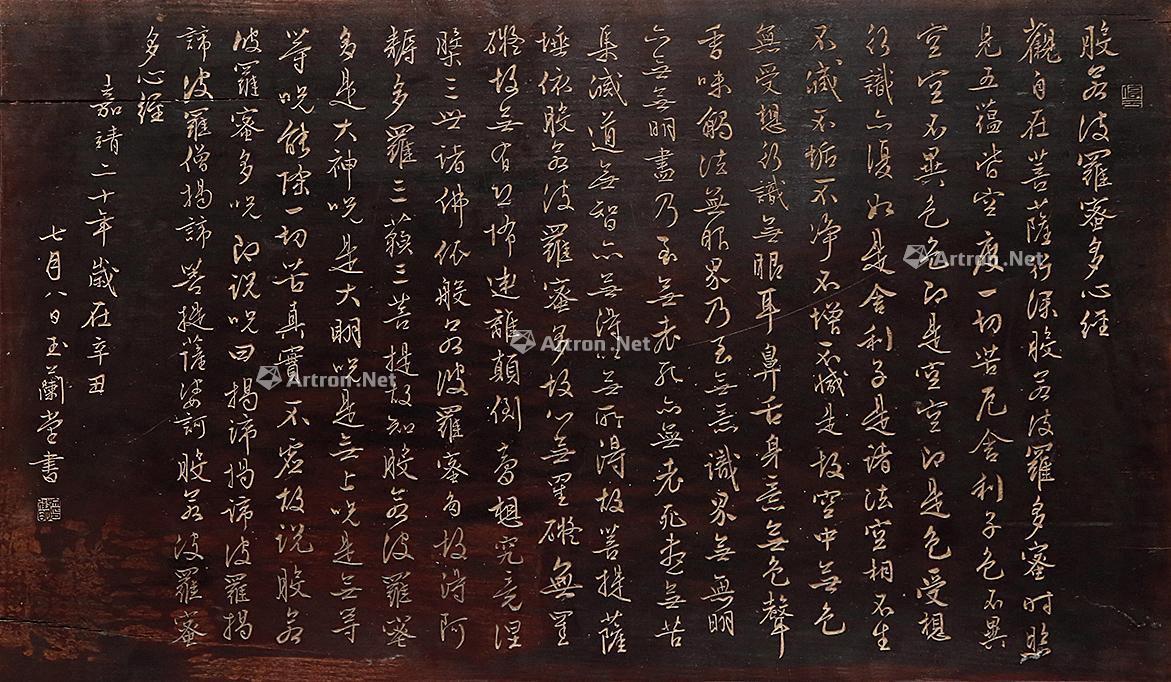 般若波羅蜜多心經
觀自在菩薩行深般若波羅多蜜時照
見五蘊皆空度一切苦厄舍利子色不異
空空不異色色即是空空即是色受想
行識亦復如是舍利子是諸法空相不生
不滅不垢不净不增不減是故空中無色
無受想行識無眼耳鼻舌身意無色聲
香味觸法無眼界乃至無意識界無無明
亦無無明盡乃至無老死亦無老死盡無苦
集滅道無智亦無得以無所得故菩提薩
埵依般若波羅蜜多故心無罣礙無罣
礙故無有恐怖遠離顛倒夢想究竟涅
槃三世諸佛依般若波羅蜜多故得阿
耨多羅三藐三菩提故知般若波羅蜜
多是大神呪是大明呪是無上呪是無等
等呪能除一切苦真實不虛故說般若
波羅蜜多呪即說呪曰揭諦揭諦波羅揭
諦波羅僧揭諦菩提薩婆訶般若波羅蜜
多心經
嘉靖二十年歲在辛丑
七月八日玉蘭堂書
Artron.Net
Artron.Net
Artron.Net